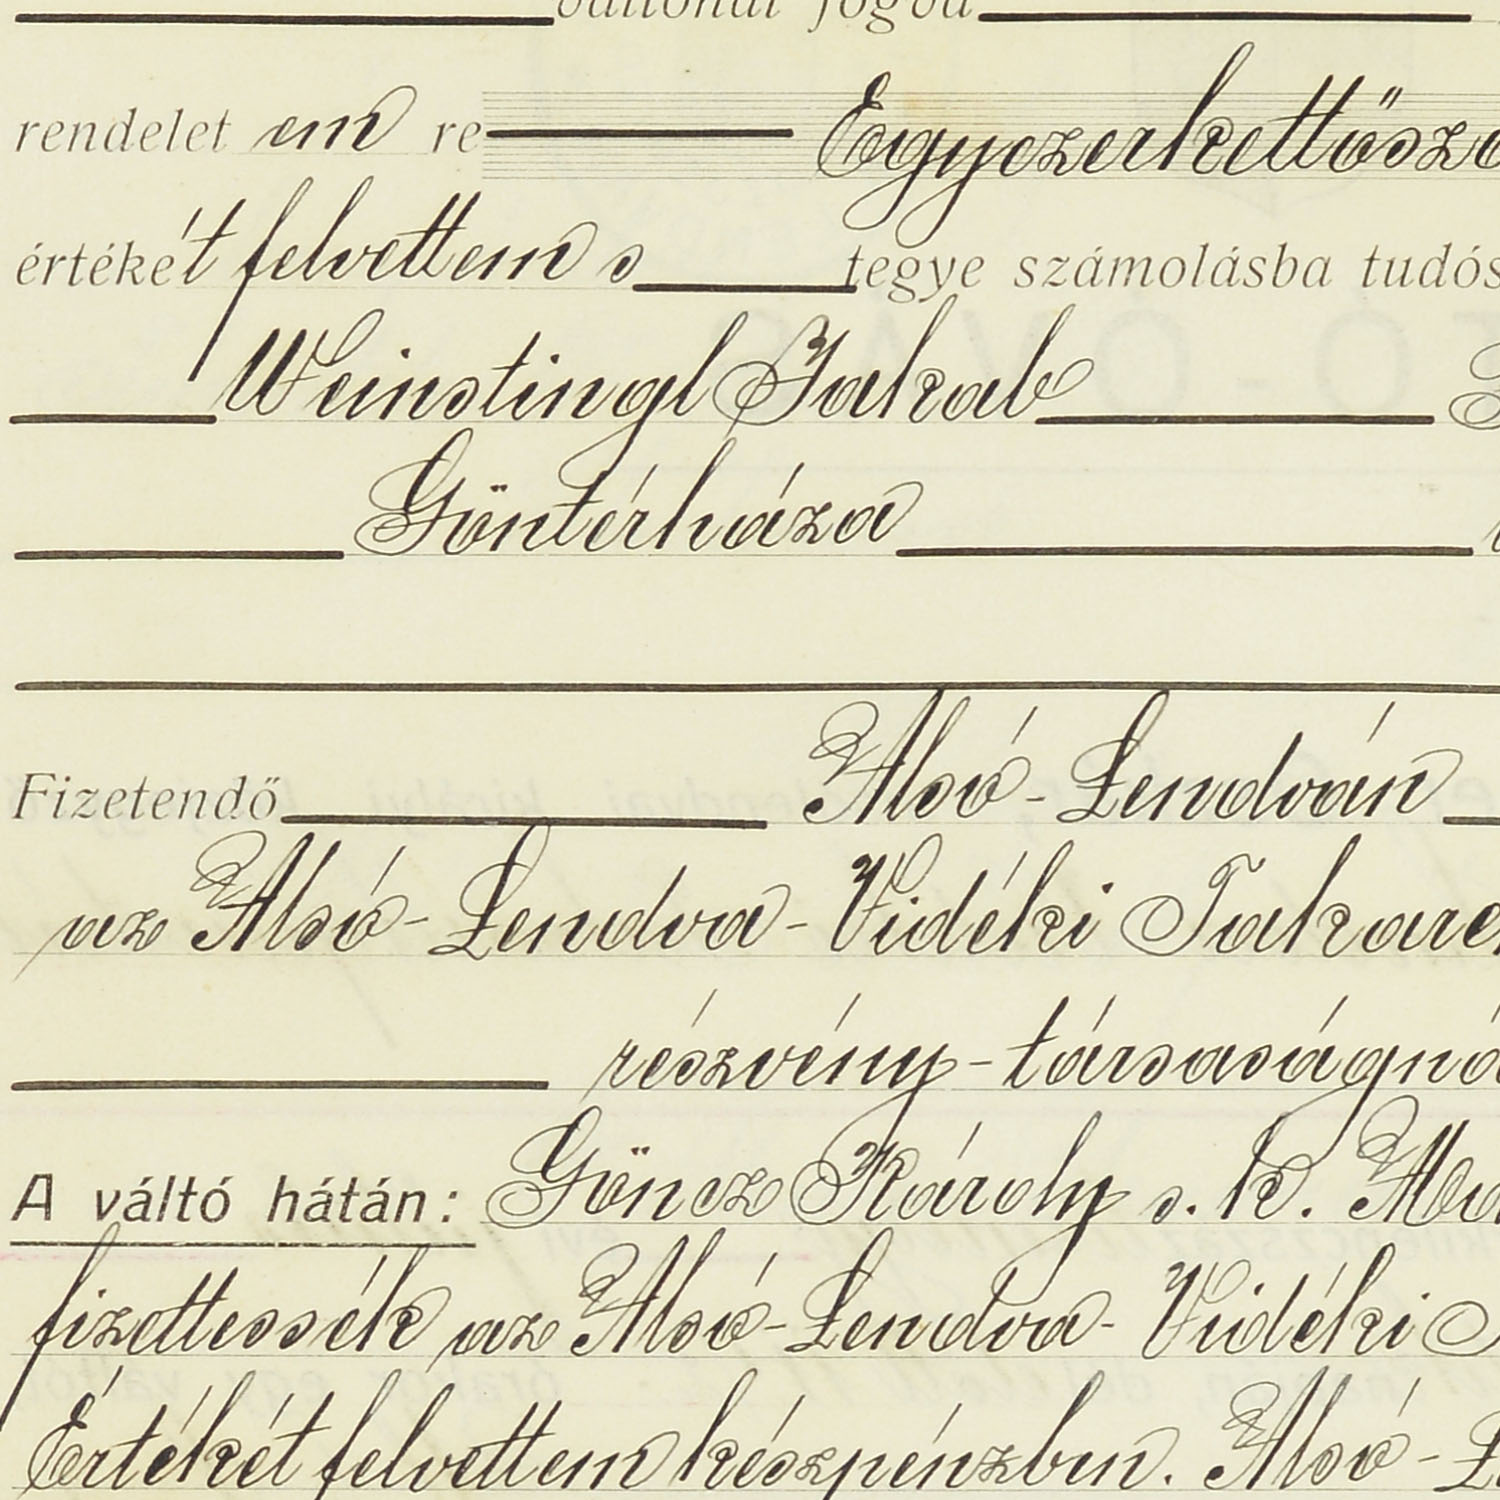 váltónál fogva
rendelet em re Egyezerkettősz
értékét felvettem s tegye számolásba tudós
Weinstingl Jakab
Göntérháza
Fizetendő Alsó-Lendván
az Alsó-Lendva-Vidéki Takare
részvény-társaságná
A váltó hátán: Göncz Károly s. k.
fizettessék az Alsó-Lendva-Vidéki
Értékét felvettem készpénzben. Alsó-L